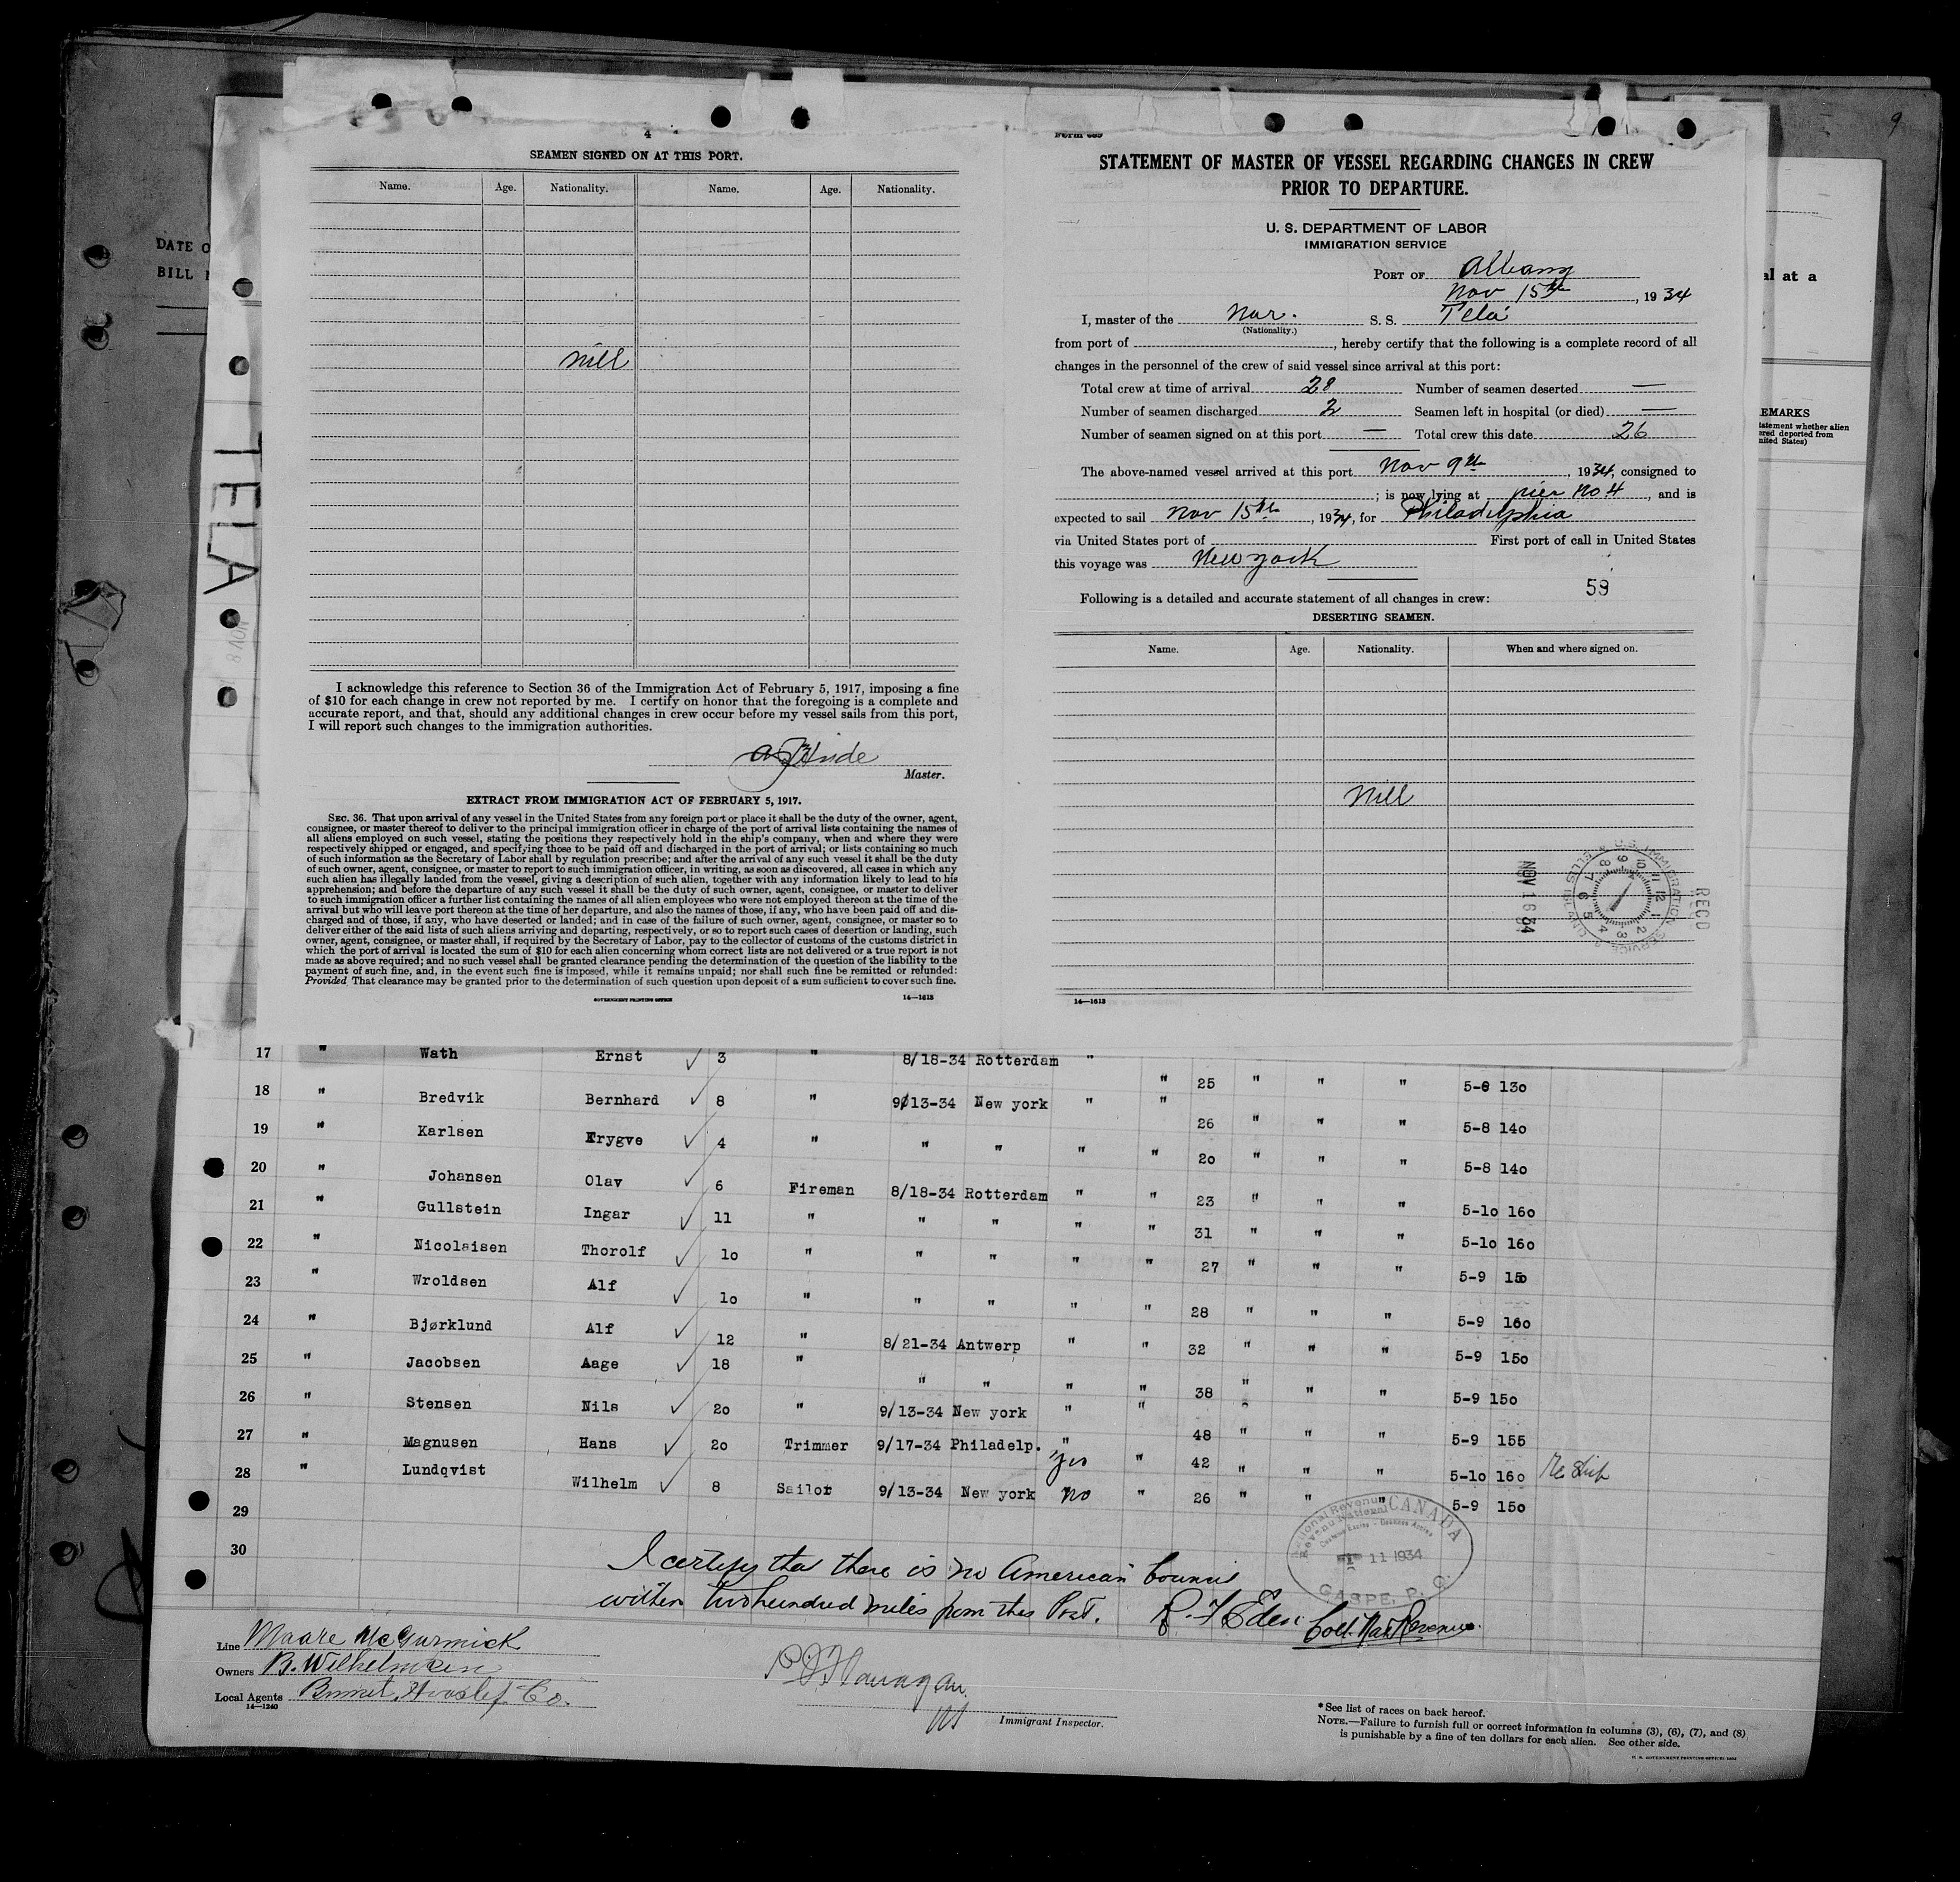 4
SEAMEN SIGNED ON AT THIS PORT.
Name. Age. Nationality. Name. Age. Nationality.
Nill
I acknowledge this reference to Section 36 of the Immigration Act of February 5, 1917, imposing a fine
of $10 for each change in crew not reported by me. I certify on honor that the foregoing is a complete and
accurate report, and that, should any additional changes in crew occur before my vessel sails from this port,
I will report such changes to the immigration authorities.
Master.
EXTRACT FROM IMMIGRATION ACT OF FEBRUARY 5, 1917.
SEC. 36. That upon arrival of any vessel in the United States from any foreign port or place it shall be the duty of the owner, agent,
consignee, or master thereof to deliver to the principal immigration officer in charge of the port of arrival lists containing the names of
all aliens employed on such vessel, stating the positions they respectively hold in the ship's company, when and where they were
respectively shipped or engaged, and specifying those to be paid off and discharged in the port of arrival; or lists containing so much
of such information as the Secretary of Labor shall by regulation prescribe; and after the arrival of any such vessel it shall be the duty
of such owner, agent, consignee, or master to report to such immigration officer, in writing, as soon as discovered, all cases in which any
such alien has illegally landed from the vessel, giving a description of such alien, together with any information likely to lead to his
apprehension; and before the departure of any such vessel it shall be the duty of such owner, agent, consignee, or master to deliver
to such immigration officer a further list containing the names of all alien employees who were not employed thereon at the time of the
arrival but who will leave port thereon at the time of her departure, and also the names of those, if any, who have been paid off and dis-
charged and of those, if any, who have deserted or landed; and in case of the failure of such owner, agent, consignee, or master so to
deliver either of the said lists of such aliens arriving and departing, respectively, or so to report such cases of desertion or landing, such
owner, agent, consignee, or master shall, if required by the Secretary of Labor, pay to the collector of customs of the customs district in
which the port of arrival is located the sum of $10 for each alien concerning whom correct lists are not delivered or a true report is not
made as above required; and no such vessel shall be granted clearance pending the determination of the question of the liability to the
payment of such fine, and, in the event such fine is imposed, while it remains unpaid; nor shall such fine be remitted or refunded:
Provided That clearance may be granted prior to the determination of such question upon deposit of a sum sufficient to cover such fine.
GOVERNMENT PRINTING OFFICE 14—1618
Form 689
STATEMENT OF MASTER OF VESSEL REGARDING CHANGES IN CREW
PRIOR TO DEPARTURE.
U. S. DEPARTMENT OF LABOR
IMMIGRATION SERVICE
PORT OF Albany
Nov 15th, 1934
I, master of the Nor. S. S. Tela
(Nationality.)
from port of , hereby certify that the following is a complete record of all
changes in the personnel of the crew of said vessel since arrival at this port:
Total crew at time of arrival 28 Number of seamen deserted —
Number of seamen discharged 2 Seamen left in hospital (or died) —
Number of seamen signed on at this port — Total crew this date 26
The above-named vessel arrived at this port Nov 9th, 1934, consigned to
; is now lying at pier No 4, and is
expected to sail Nov 15th, 1934, for Philadelphia
via United States port of First port of call in United States
this voyage was New york
59
Following is a detailed and accurate statement of all changes in crew:
DESERTING SEAMEN.
Name. Age. Nationality. When and where signed on.
Nill
RECD
U.S. IMMIGRATION SERVICE ELLIS ISLAND
NOV 16 34
14—1618
9
DATE O
BILL
TELA
NOV 8
al at a
EMARKS
17 " Wath Ernst ✓ 3 " 8/18-34 Rotterdam " " 25 " " " 5-8 130
18 " Bredvik Bernhard ✓ 8 " 9/13-34 New york " " 26 " " " 5-8 140
19 " Karlsen Trygve ✓ 4 " " " " " 20 " " " 5-8 140
20 " Johansen Olav ✓ 6 Fireman 8/18-34 Rotterdam " " 23 " " " 5-10 160
21 " Gullstein Ingar ✓ 11 " " " " " 31 " " " 5-10 160
22 " Nicolaisen Thorolf ✓ 10 " " " " " 27 " " " 5-9 150
23 " Wroldsen Alf ✓ 10 " " " " " 28 " " " 5-9 160
24 " Bjørklund Alf ✓ 12 " 8/21-34 Antwerp " " 32 " " " 5-9 150
25 " Jacobsen Aage ✓ 18 " " " " " 38 " " " 5-9 150
26 " Stensen Nils ✓ 20 " 9/13-34 New york " " 48 " " " 5-9 155
27 " Magnusen Hans ✓ 20 Trimmer 9/17-34 Philadelp. " yes " 42 " " " 5-10 160
28 " Lundqvist Wilhelm ✓ 8 Sailor 9/13-34 New york no " 26 " " " 5-9 150
29
30
National Revenue CANADA
Revenu National
11 1934
GASPE, P. Q.
I certify that there is no American Council
within two hundred miles from this Port. R. F. Eden Coll. Nat. Revenue.
Line Moore McCormick
Owners B. Wilhelmsen
Local Agents
14—1240
Immigrant Inspector.
*See list of races on back hereof.
NOTE.—Failure to furnish full or correct information in columns (3), (6), (7), and (8)
is punishable by a fine of ten dollars for each alien. See other side.